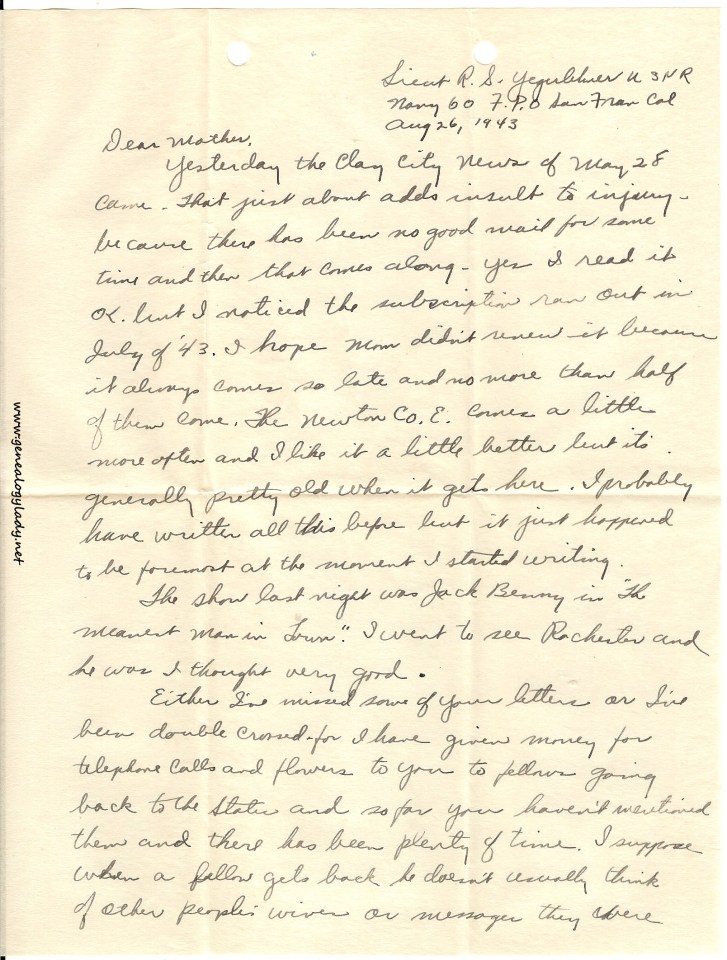 Lieut R. S. Yegerlehner USNR
Navy 60 F.P.O San Fran Cal
Aug 26, 1943
Dear Mother,
Yesterday the Clay City News of May 28
came. That just about adds insult to injury -
because there has been no good mail for some
time and then that comes along - yes I read it
OK. but I noticed the subscription ran out in
July of '43. I hope Mom didn't renew it because
it always comes so late and no more than half
of them come. The Newton Co. E. comes a little
more often and I like it a little better but its
generally pretty old when it gets here. I probably
have written all this before but it just happened
to be foremost at the moment I started writing.
The show last night was Jack Benny in "The
meanest man in Town". I went to see Rochester and
he was I thought very good.
Either I've missed some of your letters or I've
been double crossed - for I have given money for
telephone calls and flowers to you to fellows going
back to the States and so far you haven't mentioned
them and there has been plenty of time. I suppose
when a fellow gets back he doesn't usually think
of other people's wives or messages they were
www.genealogylady.net